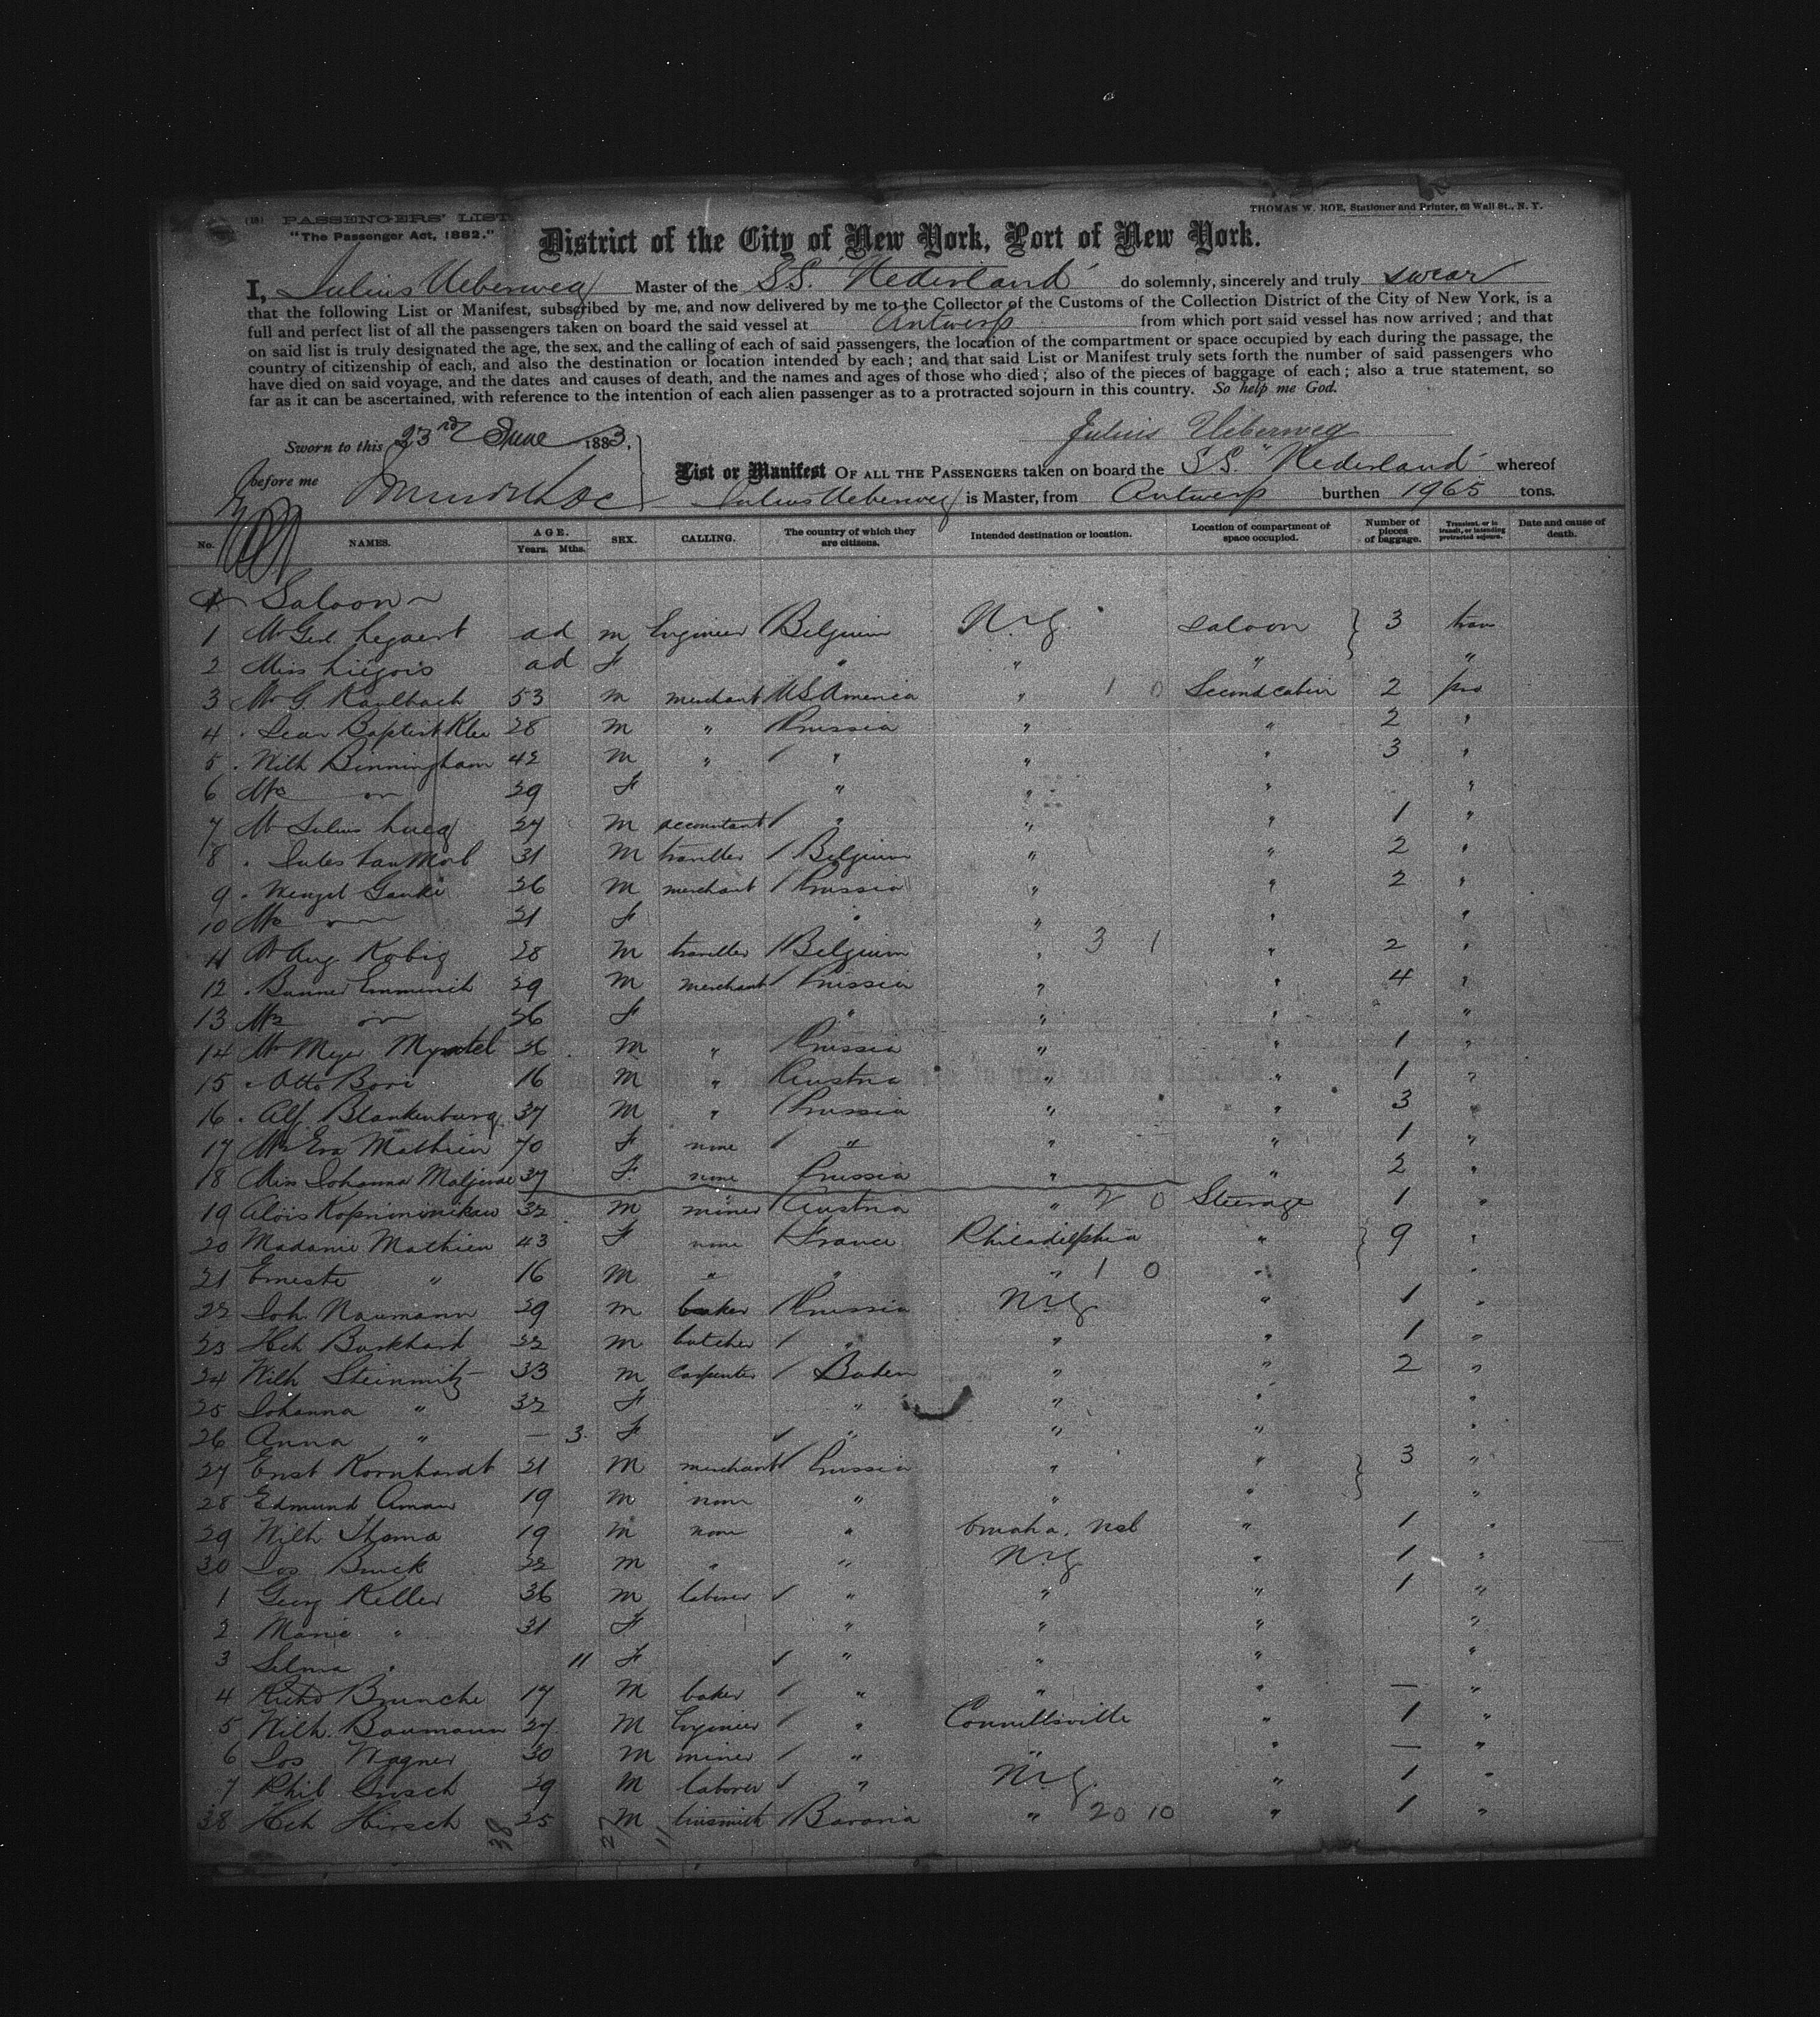 (18) PASSENGERS' LIST
"The Passenger Act, 1882."
THOMAS W. ROE, Stationer and Printer, 63 Wall St., N. Y.
District of the City of New York, Port of New York.
I, Julius Ueberweg Master of the S.S. "Nederland" do solemnly, sincerely and truly swear
that the following List or Manifest, subscribed by me, and now delivered by me to the Collector of the Customs of the Collection District of the City of New York, is a
full and perfect list of all the passengers taken on board the said vessel at Antwerp from which port said vessel has now arrived; and that
on said list is truly designated the age, the sex, and the calling of each of said passengers, the location of the compartment or space occupied by each during the passage, the
country of citizenship of each, and also the destination or location intended by each; and that said List or Manifest truly sets forth the number of said passengers who
have died on said voyage, and the dates and causes of death, and the names and ages of those who died; also of the pieces of baggage of each; also a true statement, so
far as it can be ascertained, with reference to the intention of each alien passenger as to a protracted sojourn in this country. So help me God.
Sworn to this 23rd June 1883, Julius Ueberweg
before me
List or Manifest OF ALL THE PASSENGERS taken on board the S.S. "Nederland" whereof
Julius Ueberweg is Master, from Antwerp burthen 1965 tons.
No. NAMES. AGE. Years. Mths. SEX. CALLING. The country of which they are citizens. Intended destination or location. Location of compartment of space occupied. Number of pieces of baggage. Transient, or in transit, or intending protracted sojourn. Date and cause of death.
Saloon
1 Mr Legaert ad m Engineer Belgium N.Y. saloon 3 tran
2 Miss Liégois ad F " " " "
3 Mr G. Kaulbach 53 m merchant U.S. America " 1 0 Second cabin 2 pro
4 " Jean Baptist Klee 28 m " Prussia " " 2 "
5 " Wilh Binningham 42 m " " " " 3 "
6 Mrs 29 F " " " "
7 Mr Julius Lueg 27 m accountant " " " 1 "
8 " Jules van Mol 31 m traveller Belgium " " 2 "
9 " Wenzel Ganke 26 m merchant Prussia " " 2 "
10 Mrs 21 F " " " "
11 Mr Aug Kobig 28 m traveller Belgium " 3 1 " 2 "
12 " Emmerich 29 m merchant Prussia " " 4 "
13 Mrs 26 F " " " "
14 Mr Meyer 36 m " Prussia " " 1 "
15 " Otto Bori 16 m " Austria " " 1 "
16 " Alf. Blankenburg 37 m " Prussia " " 3 "
17 Mrs Eva Mathieu 70 F none " " " 1 "
18 Miss Johanna 37 F. none Prussia " " 2 "
19 Alois 32 m miner Austria " 2 0 Steerage 1 "
20 Madame Mathieu 43 F none France Philadelphia " 9 "
21 Erneste " 16 m " " " 1 0 " "
22 Joh. Naumann 29 m baker Prussia N.Y. " 1 "
23 Hch Burkhard 22 m butcher " " " 1 "
24 Wilh Steinmitz 33 m carpenter Baden " " 2 "
25 Johanna " 32 F " " " "
26 Anna " — 3 F " " " "
27 Ernst Kornhardt 21 m merchant Prussia " " 3 "
28 Edmund Aman 19 m none " " " "
29 Wilh Thoma 19 m none " Omaha, Neb " 1 "
30 Jos Buick 22 m " " N.Y. " 1 "
1 Georg Keller 36 m laborer " " " 1 "
2 Marie " 31 F " " " "
3 Selma " 11 F " " " "
4 Richd Brunche 17 m baker " " " — "
5 Wilh. Baumann 27 m Engineer " Connellsville " 1 "
6 Jos Wagner 30 m miner " " " — "
7 Phil Grisch 29 m laborer " N.Y. " 1 "
38 Hch Hirsch 25 m tinsmith Bavaria " 20 10 " 1 "
38 27 11